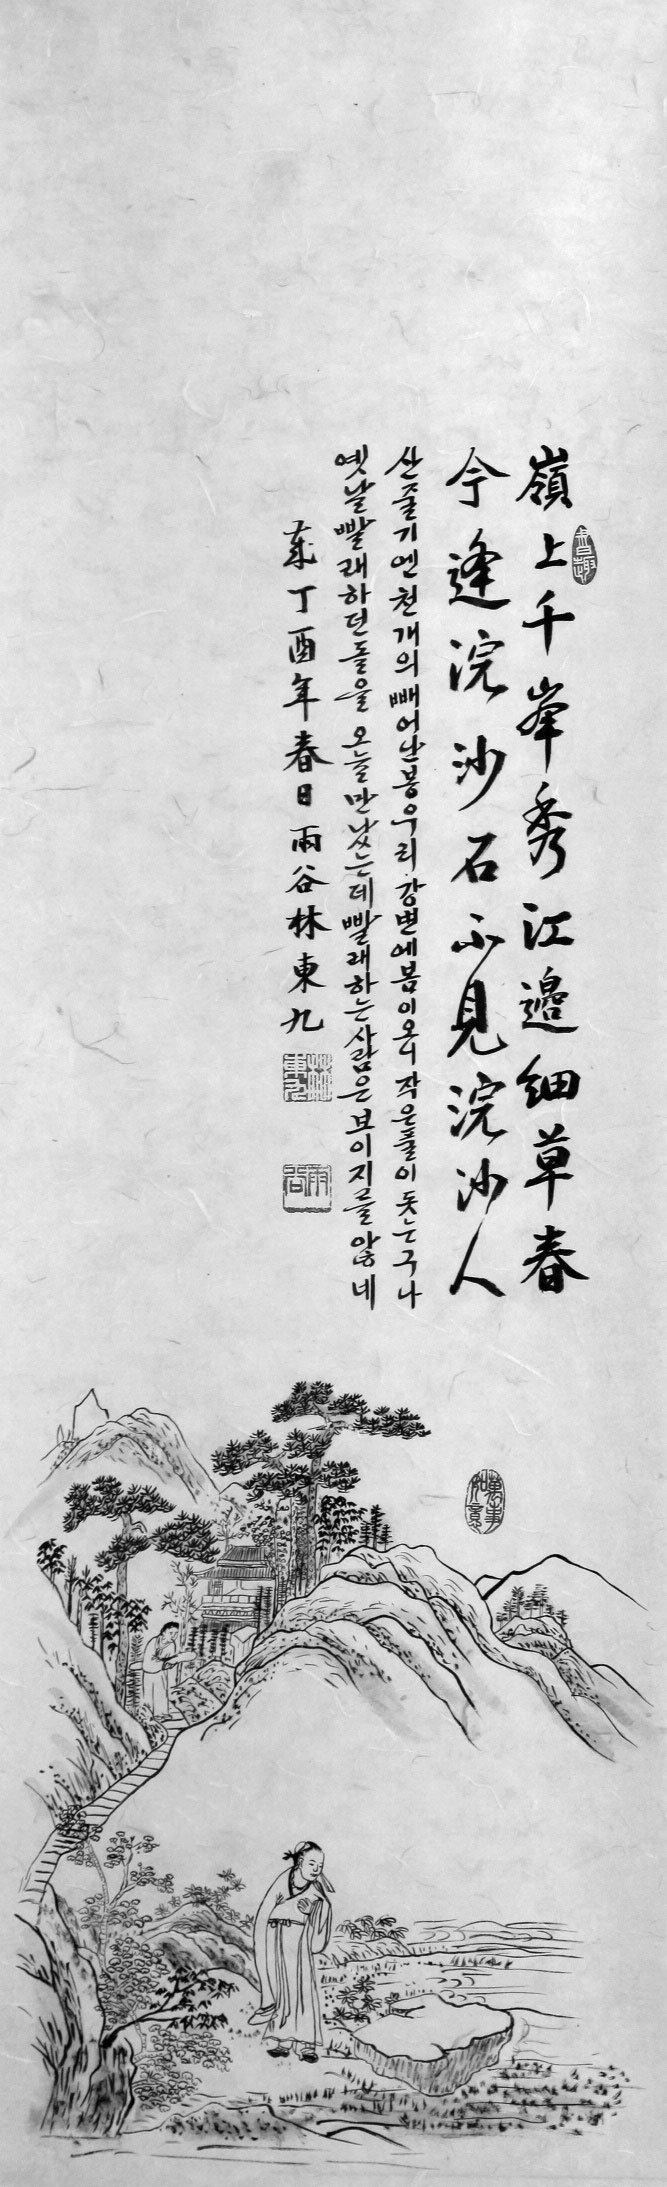 書趣
嶺上千峯秀江邊細草春
今逢浣沙石不見浣沙人
산줄기엔 천개의 빼어난 봉우리 강변에 봄이 오니 작은 풀이 돋는구나
옛날 빨래하던 돌을 오늘 만났는데 빨래하는 사람은 보이지를 않네
歲丁酉年春日雨谷林東九
林東九
雨谷
萬事如意